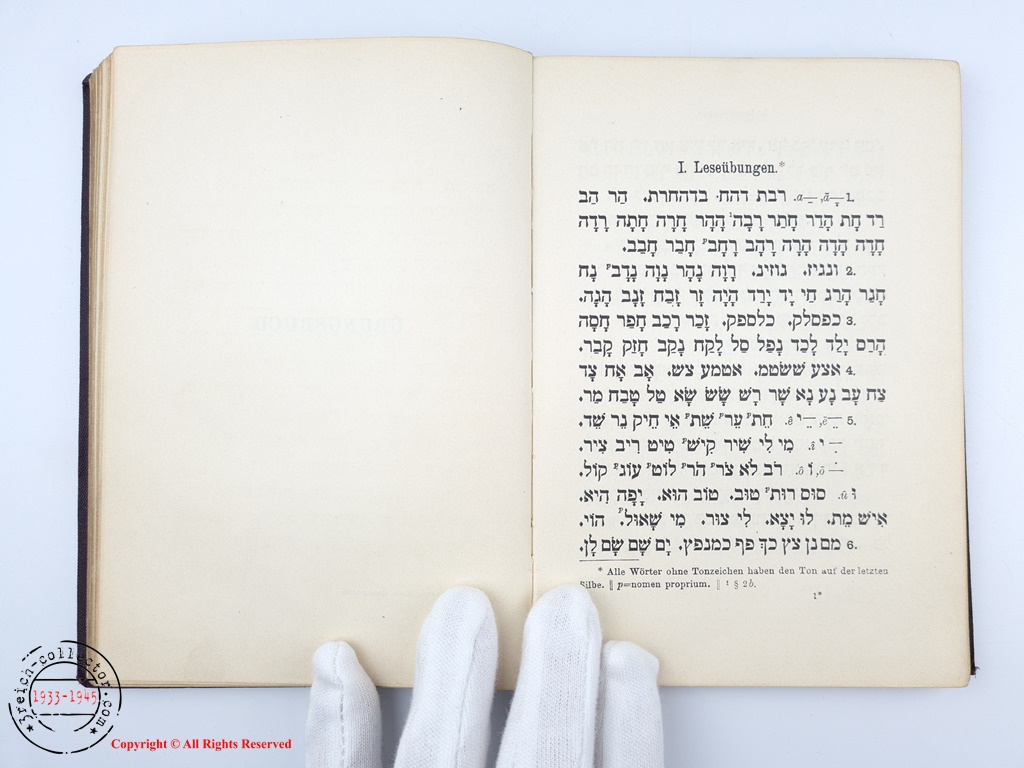 I. Leseübungen.*
1. ‎—ָ ā, —ַ a. רבת דהח· בדהחרת. הַר הַב
רַד חָת הָדַר חָתַר רָבָה¹ הָהָר חָרָה חָתָה רָדָה
חָדָה הָדָה הָרָה רָהָב רָחָבᵖ חָבַר חָבַב.
2. ונגיז. גוזינ. רָוָה נָהָר נָוָה נָדָבᵖ נָח
חָגַר הָרַג חַי יָד יָרַד הָיָה זָר זָבַח זָנָב הָגָה.
3. כפסלק. כלספק. זָכַר רָכַב חָפַר חָסָה
הָרַס יָלַד לָכַד נָפַל סַל לָקַח נָקַב חָזַק קָבַר.
4. אצע ששטמ. אטמע צש. אָב אָח צָד
צַח עָב נָע נָא שָׁר רָשׁ שָׂשׂ שָׂא טַל טָבַח מַר.
5. —ֵ ē, —ֵי ê. חֵתᵖ עֵרᵖ שֵׁתᵖ אֵי חֵיק גֵר שֵׁד.
—ִ י î. מִי לִי שִׁיר קִישׁᵖ טִיט רִיב צִיר.
—ֹ ō, וֹ ô. רֹב לֹא צֹרᵖ הֹרᵖ לוֹטᵖ עוֹגᵖ קוֹל.
וּ û. סוּס רוּתᵖ טוּב. טוֹב הוּא. יָפָה הִיא.
אִישׁ מֵת. לוּ יָצָא. לִי צוּר. מִי שָׁאוּלᵖ. הוֹי.
6. מם נן צץ כך פף כמנפץ. יָם שָׁם שָׂם לָן.
* Alle Wörter ohne Tonzeichen haben den Ton auf der letzten
Silbe. ‖ p=nomen proprium. ‖ ¹ § 2b.
1*
3reich-collector.com
1933-1945
Copyright © All Rights Reserved